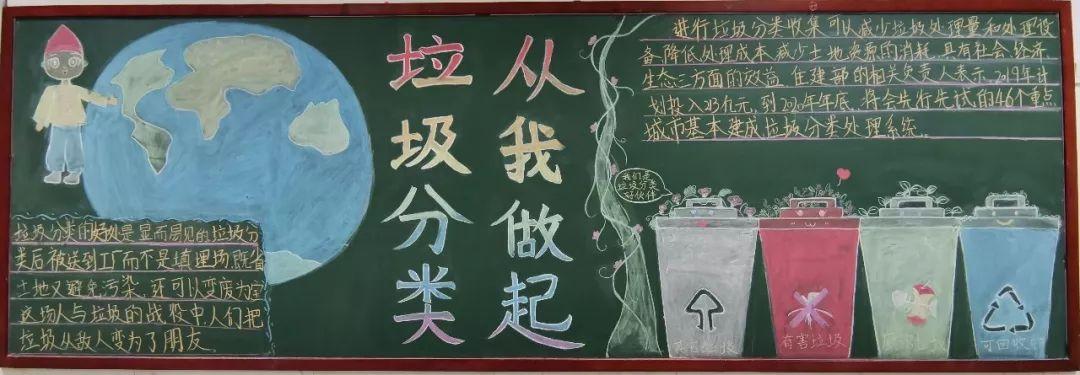 垃圾分类
从我做起
垃圾分类的好处是显而易见的垃圾分
类后被送到工厂而不是填埋场,既省
土地又避免污染,还可以变废为宝
这场人与垃圾的战役中人们把
垃圾从敌人变为了朋友
进行垃圾分类收集可以减少垃圾处理量和处理设
备降低处理成本减少土地资源的消耗,具有社会经济
生态三方面的效益,住建部的相关负责人表示,2019年计
划投入213亿元,到2020年年底,将会先行先试的46个重点
城市基本建成垃圾分类处理系统.
我们是
垃圾分类
好伙伴
有害垃圾
可回收